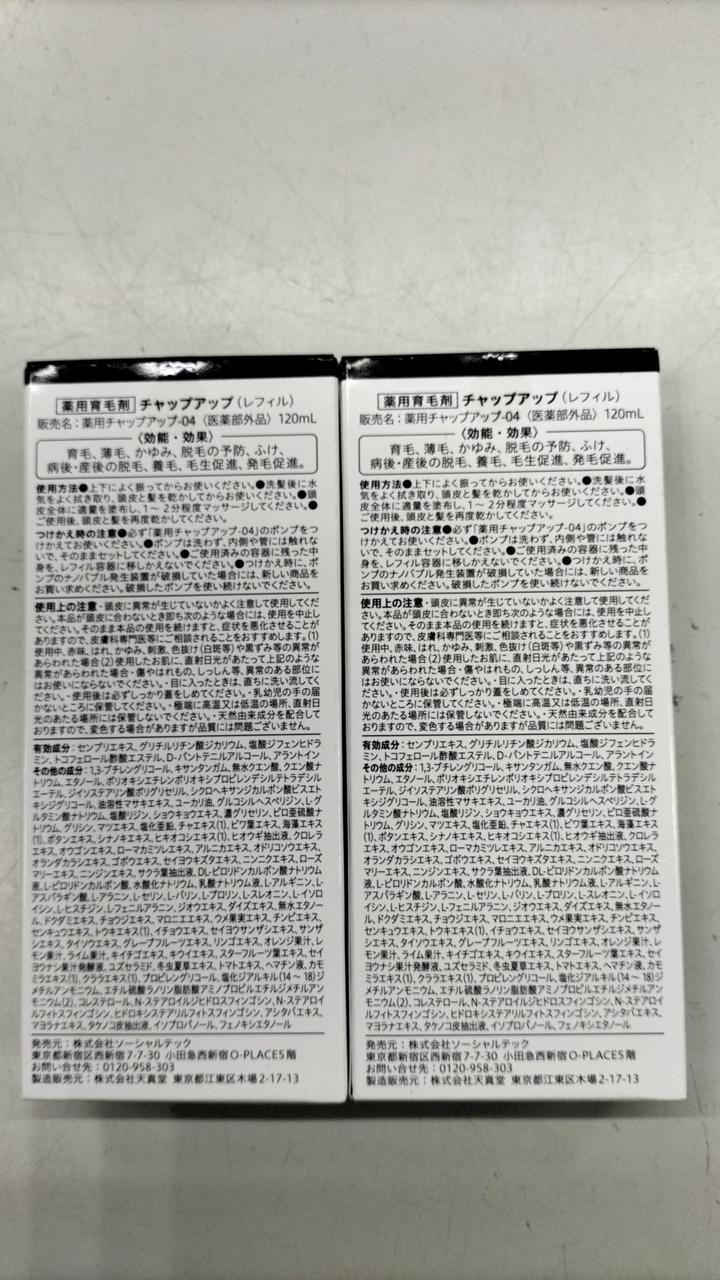 薬用育毛剤 チャップアップ（レフィル）
販売名：薬用チャップアップ-04〈医薬部外品〉120mL
〈効能・効果〉
育毛、薄毛、かゆみ、脱毛の予防、ふけ、
病後・産後の脱毛、養毛、毛生促進、発毛促進。
使用方法●上下によく振ってからお使いください。●洗髪後に水
気をよく拭き取り、頭皮と髪を乾かしてからお使いください。●頭
皮全体に適量を塗布し、1～2分程度マッサージしてください。●
ご使用後、頭皮と髪を再度乾かしてください。
つけかえ時の注意●必ず「薬用チャップアップ-04」のポンプをつ
けかえてお使いください。●ポンプは洗わず、内側や管には触れな
いで、そのままセットしてください。●ご使用済みの容器に残った中
身を、レフィル容器に移しかえないでください。●つけかえ時に、ポ
ンプのナノバブル発生装置が破損していた場合には、新しい商品を
お買い求めください。破損したポンプを使い続けないでください。
使用上の注意・頭皮に異常が生じていないかよく注意して使用してくだ
さい。本品が頭皮に合わないとき即ち次のような場合には、使用を中止し
てください。そのまま本品の使用を続けますと、症状を悪化させることが
ありますので、皮膚科専門医等にご相談されることをおすすめします。(1)
使用中、赤味、はれ、かゆみ、刺激、色抜け(白斑等)や黒ずみ等の異常が
あらわれた場合(2)使用したお肌に、直射日光があたって上記のような
異常があらわれた場合・傷やはれもの、しっしん等、異常のある部位に
はお使いにならないでください。・目に入ったときは、直ちに洗い流してく
ださい。・使用後は必ずしっかり蓋をしめてください。・乳幼児の手の届
かないところに保管してください。・極端に高温又は低温の場所、直射日
光のあたる場所には保管しないでください。・天然由来成分を配合して
おりますので、変色する場合がありますが品質には問題ございません。
有効成分：センブリエキス、グリチルリチン酸ジカリウム、塩酸ジフェンヒドラ
ミン、トコフェロール酢酸エステル、D-パントテニルアルコール、アラントイン
その他の成分：1,3-ブチレングリコール、キサンタンガム、無水クエン酸、クエン酸ナ
トリウム、エタノール、ポリオキシエチレンポリオキシプロピレンデシルテトラデシル
エーテル、ジイソステアリン酸ポリグリセリル、シクロヘキサンジカルボン酸ビスエト
キシジグリコール、油溶性マサキエキス、ユーカリ油、グルコシルヘスペリジン、L-グ
ルタミン酸ナトリウム、塩酸リジン、ショウキョウエキス、濃グリセリン、ピロ亜硫酸ナ
トリウム、グリシン、マツエキス、塩化亜鉛、チャエキス(1)、ビワ葉エキス、海藻エキス
(1)、ボタンエキス、シナノキエキス、ヒキオコシエキス(1)、ヒオウギ抽出液、クロレラ
エキス、オウゴンエキス、ローマカミツレエキス、アルニカエキス、オドリコソウエキス、
オランダカラシエキス、ゴボウエキス、セイヨウキズタエキス、ニンニクエキス、ローズ
マリーエキス、ニンジンエキス、サクラ葉抽出液、DL-ピロリドンカルボン酸ナトリウム
液、L-ピロリドンカルボン酸、水酸化ナトリウム、乳酸ナトリウム液、L-アルギニン、L-
アスパラギン酸、L-アラニン、L-セリン、L-バリン、L-プロリン、L-スレオニン、L-イソロ
イシン、L-ヒスチジン、L-フェニルアラニン、ジオウエキス、ダイズエキス、無水エタノー
ル、ドクダミエキス、チョウジエキス、マロニエエキス、ウメ果実エキス、チンピエキス、
センキュウエキス、トウキエキス(1)、イチョウエキス、セイヨウサンザシエキス、サンザ
シエキス、タイソウエキス、グレープフルーツエキス、リンゴエキス、オレンジ果汁、レ
モン果汁、ライム果汁、キイチゴエキス、キウイエキス、スターフルーツ葉エキス、セイ
ヨウナシ果汁発酵液、ユズセラミド、冬虫夏草エキス、トマトエキス、ヘマチン液、カモ
ミラエキス(1)、クララエキス(1)、プロピレングリコール、塩化ジアルキル(14～18)ジ
メチルアンモニウム、エチル硫酸ラノリン脂肪酸アミノプロピルエチルジメチルアン
モニウム(2)、コレステロール、N-ステアロイルジヒドロスフィンゴシン、N-ステアロイ
ルフィトスフィンゴシン、ヒドロキシステアリルフィトスフィンゴシン、アシタバエキス、
マヨラナエキス、タケノコ皮抽出液、イソプロパノール、フェノキシエタノール
発売元：株式会社ソーシャルテック
東京都新宿区西新宿7-7-30 小田急西新宿O-PLACE5階
お問い合せ先：0120-958-303
製造販売元：株式会社天真堂 東京都江東区木場2-17-13
薬用育毛剤 チャップアップ（レフィル）
販売名：薬用チャップアップ-04〈医薬部外品〉120mL
〈効能・効果〉
育毛、薄毛、かゆみ、脱毛の予防、ふけ、
病後・産後の脱毛、養毛、毛生促進、発毛促進。
使用方法●上下によく振ってからお使いください。●洗髪後に水
気をよく拭き取り、頭皮と髪を乾かしてからお使いください。●頭
皮全体に適量を塗布し、1～2分程度マッサージしてください。●
ご使用後、頭皮と髪を再度乾かしてください。
つけかえ時の注意●必ず「薬用チャップアップ-04」のポンプをつ
けかえてお使いください。●ポンプは洗わず、内側や管には触れな
いで、そのままセットしてください。●ご使用済みの容器に残った中
身を、レフィル容器に移しかえないでください。●つけかえ時に、ポ
ンプのナノバブル発生装置が破損していた場合には、新しい商品を
お買い求めください。破損したポンプを使い続けないでください。
使用上の注意・頭皮に異常が生じていないかよく注意して使用してくだ
さい。本品が頭皮に合わないとき即ち次のような場合には、使用を中止し
てください。そのまま本品の使用を続けますと、症状を悪化させることが
ありますので、皮膚科専門医等にご相談されることをおすすめします。(1)
使用中、赤味、はれ、かゆみ、刺激、色抜け(白斑等)や黒ずみ等の異常が
あらわれた場合(2)使用したお肌に、直射日光があたって上記のような
異常があらわれた場合・傷やはれもの、しっしん等、異常のある部位に
はお使いにならないでください。・目に入ったときは、直ちに洗い流してく
ださい。・使用後は必ずしっかり蓋をしめてください。・乳幼児の手の届
かないところに保管してください。・極端に高温又は低温の場所、直射日
光のあたる場所には保管しないでください。・天然由来成分を配合して
おりますので、変色する場合がありますが品質には問題ございません。
有効成分：センブリエキス、グリチルリチン酸ジカリウム、塩酸ジフェンヒドラ
ミン、トコフェロール酢酸エステル、D-パントテニルアルコール、アラントイン
その他の成分：1,3-ブチレングリコール、キサンタンガム、無水クエン酸、クエン酸ナ
トリウム、エタノール、ポリオキシエチレンポリオキシプロピレンデシルテトラデシル
エーテル、ジイソステアリン酸ポリグリセリル、シクロヘキサンジカルボン酸ビスエト
キシジグリコール、油溶性マサキエキス、ユーカリ油、グルコシルヘスペリジン、L-グ
ルタミン酸ナトリウム、塩酸リジン、ショウキョウエキス、濃グリセリン、ピロ亜硫酸ナ
トリウム、グリシン、マツエキス、塩化亜鉛、チャエキス(1)、ビワ葉エキス、海藻エキス
(1)、ボタンエキス、シナノキエキス、ヒキオコシエキス(1)、ヒオウギ抽出液、クロレラ
エキス、オウゴンエキス、ローマカミツレエキス、アルニカエキス、オドリコソウエキス、
オランダカラシエキス、ゴボウエキス、セイヨウキズタエキス、ニンニクエキス、ローズ
マリーエキス、ニンジンエキス、サクラ葉抽出液、DL-ピロリドンカルボン酸ナトリウム
液、L-ピロリドンカルボン酸、水酸化ナトリウム、乳酸ナトリウム液、L-アルギニン、L-
アスパラギン酸、L-アラニン、L-セリン、L-バリン、L-プロリン、L-スレオニン、L-イソロ
イシン、L-ヒスチジン、L-フェニルアラニン、ジオウエキス、ダイズエキス、無水エタノー
ル、ドクダミエキス、チョウジエキス、マロニエエキス、ウメ果実エキス、チンピエキス、
センキュウエキス、トウキエキス(1)、イチョウエキス、セイヨウサンザシエキス、サンザ
シエキス、タイソウエキス、グレープフルーツエキス、リンゴエキス、オレンジ果汁、レ
モン果汁、ライム果汁、キイチゴエキス、キウイエキス、スターフルーツ葉エキス、セイ
ヨウナシ果汁発酵液、ユズセラミド、冬虫夏草エキス、トマトエキス、ヘマチン液、カモ
ミラエキス(1)、クララエキス(1)、プロピレングリコール、塩化ジアルキル(14～18)ジ
メチルアンモニウム、エチル硫酸ラノリン脂肪酸アミノプロピルエチルジメチルアン
モニウム(2)、コレステロール、N-ステアロイルジヒドロスフィンゴシン、N-ステアロイ
ルフィトスフィンゴシン、ヒドロキシステアリルフィトスフィンゴシン、アシタバエキス、
マヨラナエキス、タケノコ皮抽出液、イソプロパノール、フェノキシエタノール
発売元：株式会社ソーシャルテック
東京都新宿区西新宿7-7-30 小田急西新宿O-PLACE5階
お問い合せ先：0120-958-303
製造販売元：株式会社天真堂 東京都江東区木場2-17-13